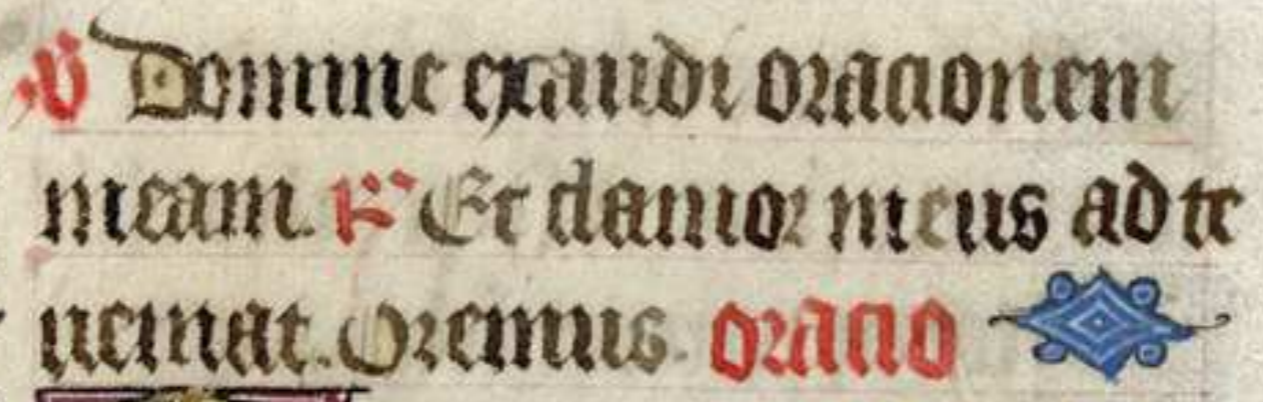 ℣ Domine exaudi oracionem
meam. ℟ Et clamor meus ad te
ueniat. Oremus. oracio